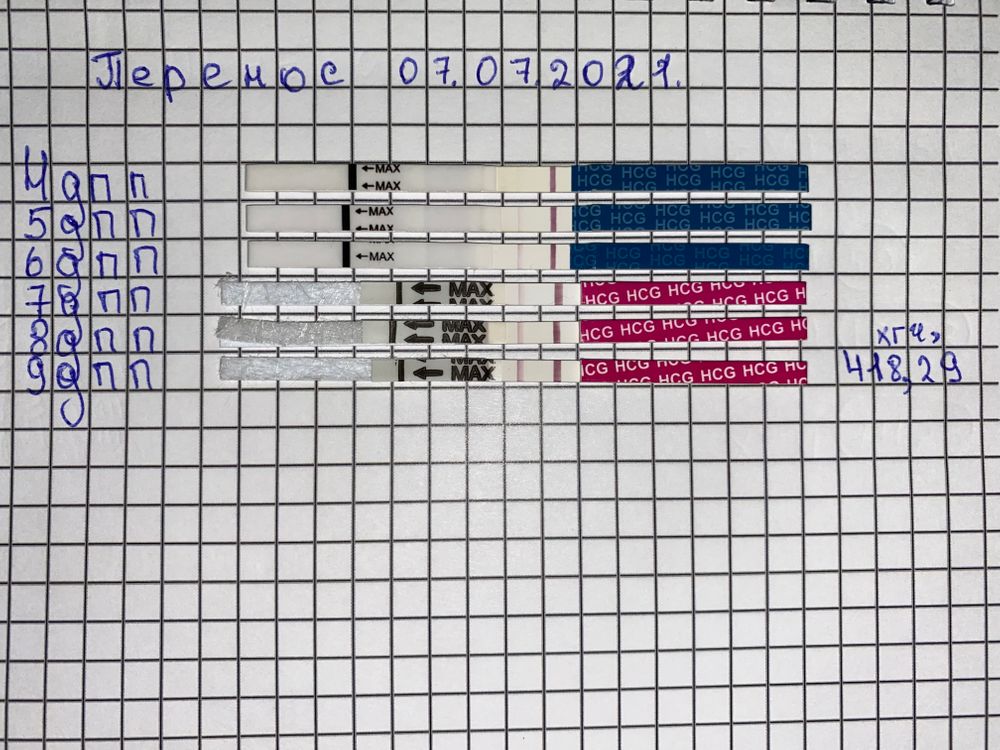 Перенос 07.07.2021.
4дпп
←MAX
←MAX
HCG HCG HCG HCG HCG
5дпп
←MAX
←MAX
HCG HCG HCG HCG HCG
6дпп
←MAX
HCG HCG HCG HCG HCG
7дпп
←MAX
HCG HCG HCG HCG HCG
8дпп
←MAX
HCG HCG HCG HCG HCG
хгч,
9дпп
←MAX
HCG HCG HCG HCG HCG
418,29